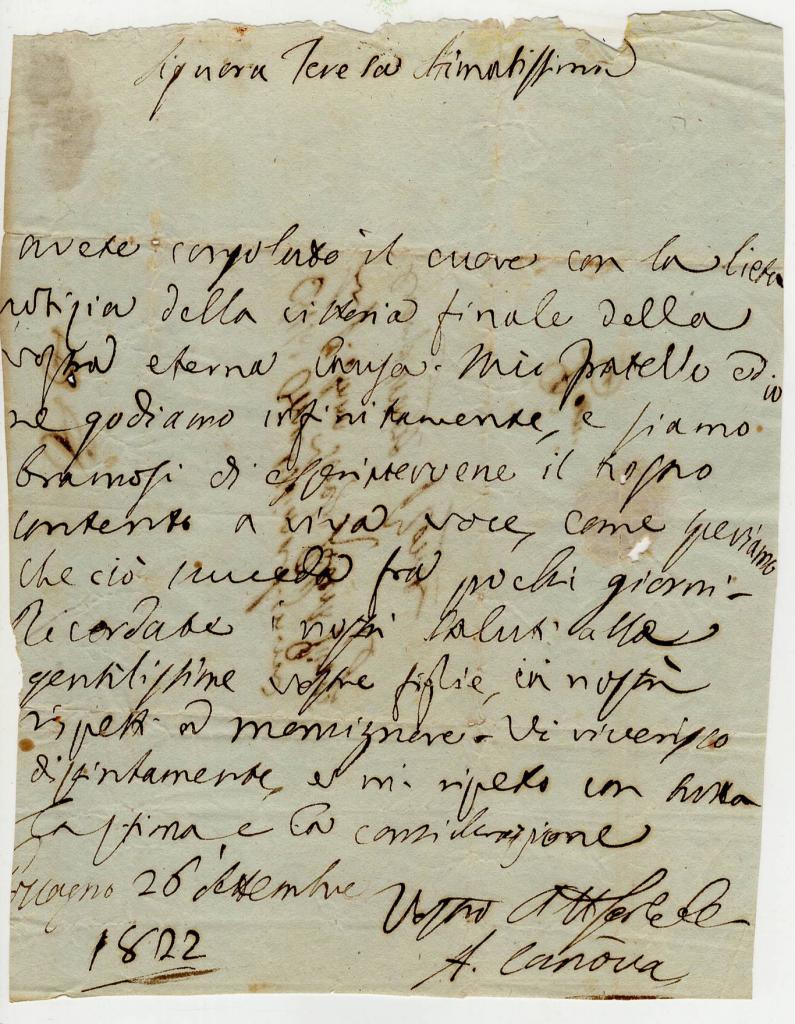 Signora Teresa Stimatissima
avete consolato il cuore con la lieta
notizia della vittoria finale della
vostra eterna Causa. Mio fratello ed io
ne godiamo infinitamente, e siamo
bramosi di il nostro
contento a viva voce, come speriamo
che ciò succeda fra pochi giorni-
Ricordate i nostri saluti alle
gentilissime vostre figlie, i nostri
rispetti a monsignore. Vi riverisco
distintamente, e mi ripeto con tutta
la stima e la considerazione
26 settembre
1822
Vostro
A. Canova